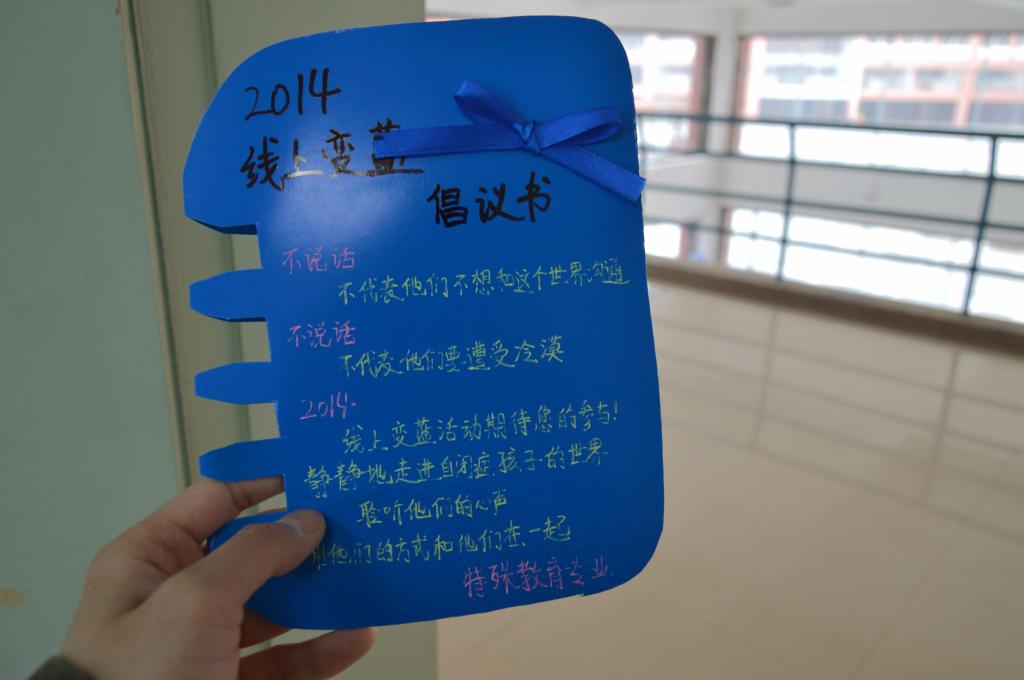 2014
线上变蓝
倡议书
不说话
不代表他们不想和这个世界沟通
不说话
不代表他们要遭受冷漠
2014
线上变蓝活动期待您的参与!
静静地走进自闭症孩子的世界
聆听他们的心声
用他们的方式和他们在一起
特殊教育专业